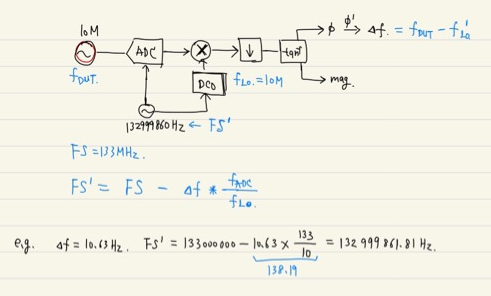 10M
ADC
DCO
tan⁻¹
ϕ ϕ' → Δf. = f_DUT - f'_LO
mag.
f_DUT.
f_LO. = 10M
132999860 Hz ← FS'
FS = 133MHz.
FS' = FS - Δf * f_ADC / f_LO.
e.g. Δf = 10.63 Hz. FS' = 133000000 - 10.63 × 133 / 10 = 132 999 861.81 Hz.
138.19